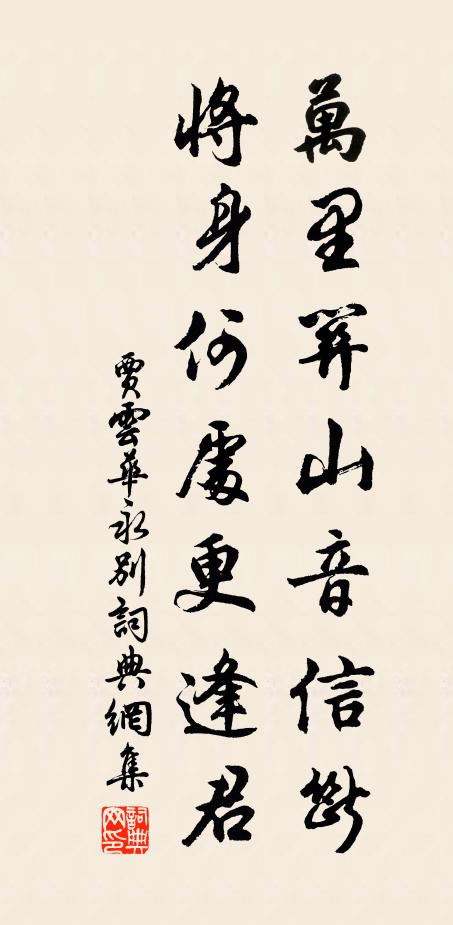 萬里關山音信斷
將身何處更逢君
賈雲華永別詞典網集
詞典網印